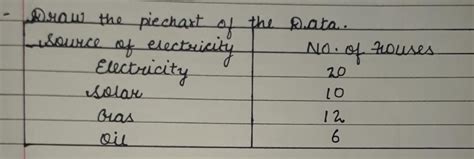 - Draw the piechart of the Data.
Source of electricity No. of houses
Electricity 20
Solar 10
Gas 12
Oil 6